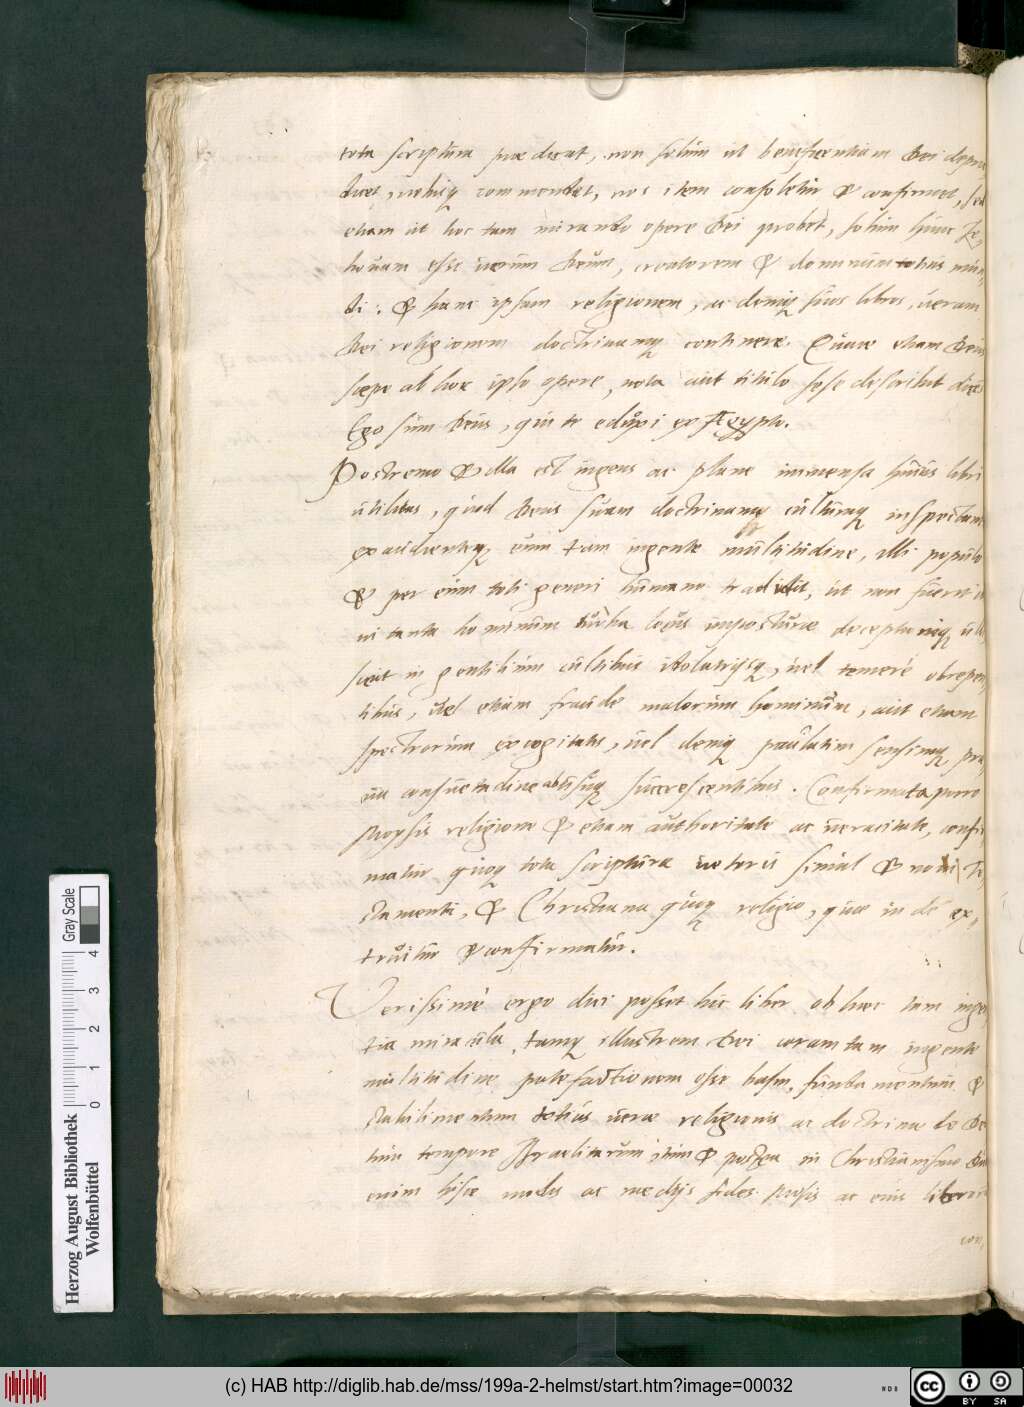 tota scriptura praedicat, non solùm ut beneficentiam Dei depraedicet, nobisq commendet, nos item consoletur & confirmet, sed
etiam ut hoc tam mirando opere Dei probet, solum hunc Je-
hovam esse verum Deum, creatorem & dominum totius mun-
di: & hanc ipsam religionem, ac deniq suos libros, veram
Dei religionem doctrinamq continere. Quare etiam Deus
saepe ab hoc ipso opere, nota aut titulo sese describit
Ego sum Deus, qui te eduxi ex Aegypto.
Postremo & illa est ingens ac plane immensa huius libri
utilitas, quod Deus suam doctrinamq cultumq inspectante
exaudienteq eum tam ingente multitudine, illi populo
& per eum toti generi humano tradidit, ut non fuerit
in tanta hominum turba locus imposturae deceptioniq ulli
sicut in gentilium cultibus idolatrijsq, vel temerè obrepen-
tibus, vel etiam fraude malorum hominum, aut etiam
spectrorum excogitatis, vel deniq paulatim sensimq pra-
va consuetudine abusuq succrescentibus. Confirmata porro
Moysis religione & etiam authoritate ac veracitate, confir-
matur quoq tota scriptura veteris simul & novi Te-
stamenti, & Christiana quoq religio, quae inde ex-
truitur & confirmatur.
Verissimè ergo dici posset hic liber ob haec tam ingen-
tia miracula, tamq illustrem Dei coram tam ingente
multitudine patefactionem esse basin, fundamentum &
stabilimentum totius verae religionis ac doctrinae de Deo
tum tempore Israelitarum, tum & postea in Christianismo
enim hisce modis ac medijs fides Mosis ac eius librorum
con-
Herzog August Bibliothek
Wolfenbüttel
0 1 2 3 4
Gray Scale
(c) HAB http://diglib.hab.de/mss/199a-2-helmst/start.htm?image=00032
cc BY SA